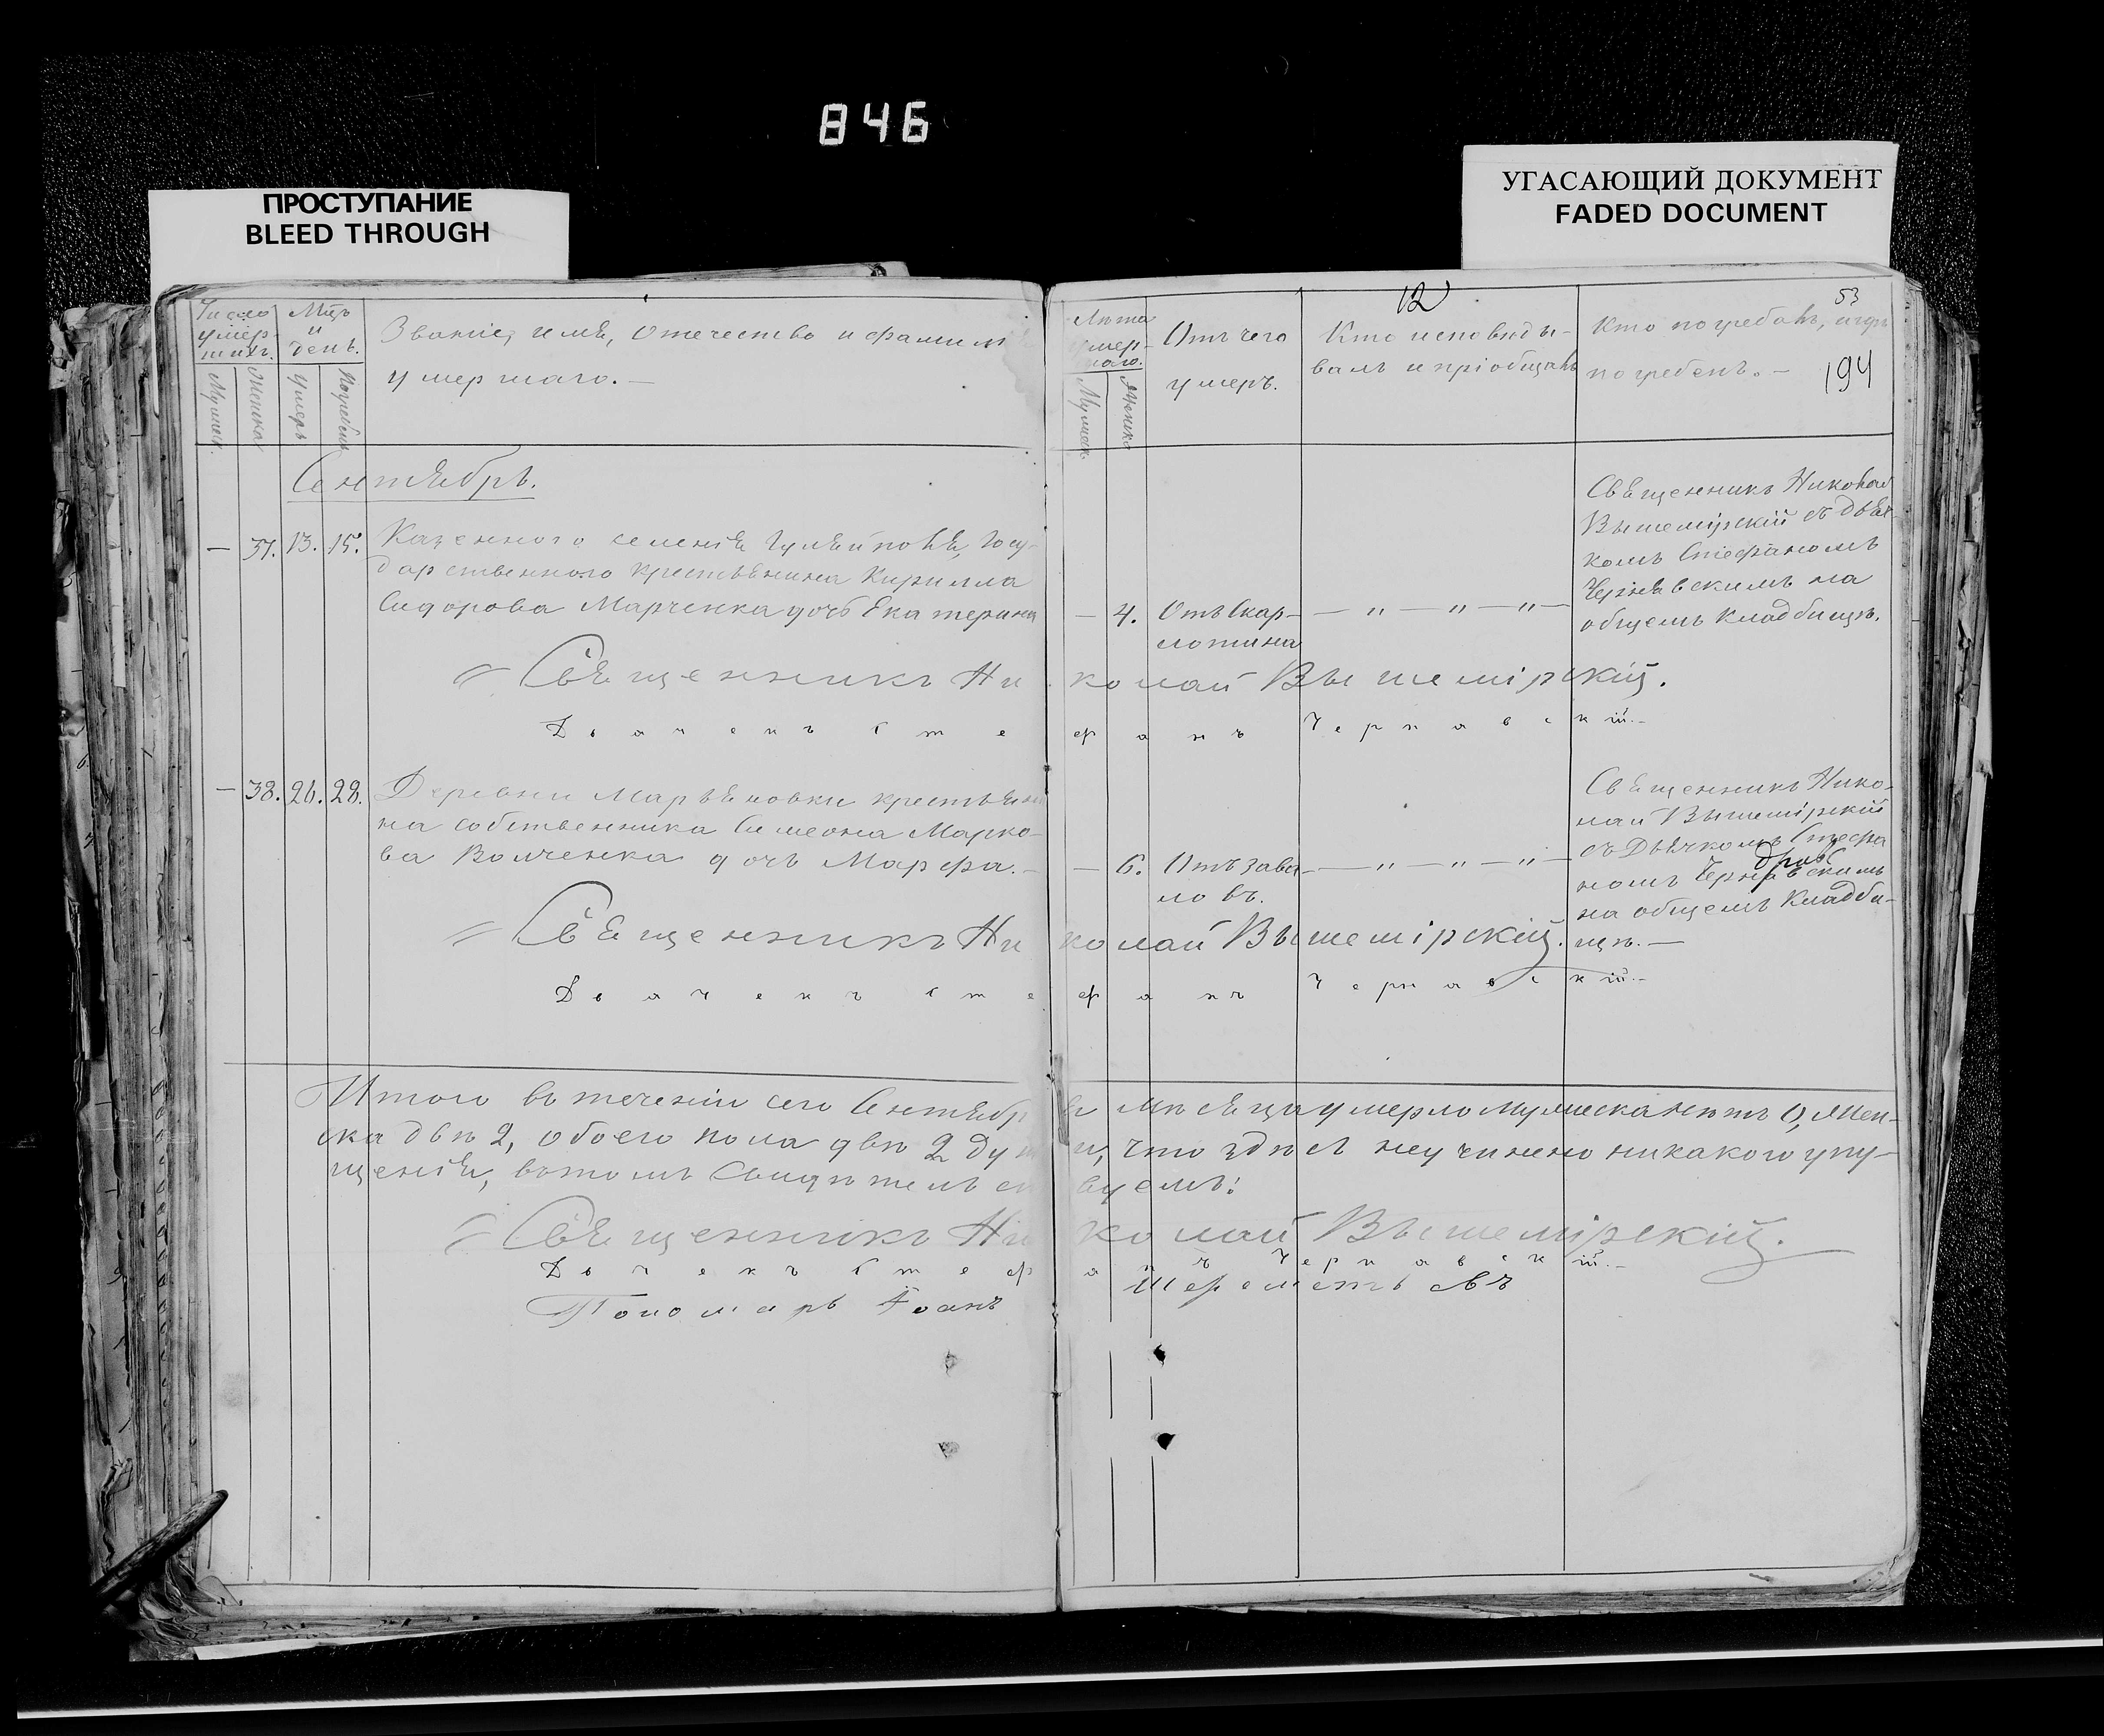 846
ПРОСТУПАНИЕ
BLEED THROUGH
УГАСАЮЩИЙ ДОКУМЕНТ
FADED DOCUMENT
12
53
194
Число умершихъ.
Мцъ и день.
Званіе, имя, отечество и фамилія
умершаго. —
Мужеск.
Женска
Умеръ
Погребенъ
Лѣта умершаго.
Мужеск
Женска
Отъ чего
умеръ.
Кто исповѣды-
валъ и пріобщалъ
Кто погребалъ, и гдѣ
погребенъ. —
Сентябрь.
— 37. 13. 15. Казенного селенія Госу-
дарственного крестьянина Кирилла
Сидорова Марченка дочь Екатерина
— 4. Отъ Скар-
лотина
— " — " — " —
Священникъ Николай
Вышемірскій съ Дьяч-
комъ Стефаномъ
Чернявскимъ на
общемъ кладбищѣ.
Священникъ Николай Вышемірскій.
Дьячекъ Стефанъ Чернавскій. —
— 38. 26. 28. Деревни Марьяновки крестьяни
на собственника Симеона Марко-
ва Волченка дочь Марфа. —
— 6. Отъ зава
ловъ.
— " — " — " —
Священникъ Нико-
лай Вышемірскій
съ Дьячкомъ Стефа
номъ Чернявскимъ
на общемъ кладби-
щѣ. —
Священникъ Николай Вышемірскій.
Дьячекъ Стефанъ Чернавскій. —
Итого въ теченіи сего Сентября мѣсяца умерло мужеска нѣтъ 0, жен-
ска двѣ 2, обоего пола двѣ 2 души, что здѣсь неучинено никакого упу-
щенія, вътомъ свидѣтельствуемъ:
Священникъ Николай Вышемірскій.
Дьячекъ Стефанъ Чернавскій. —
Пономарь Іоанъ Шереметьевъ